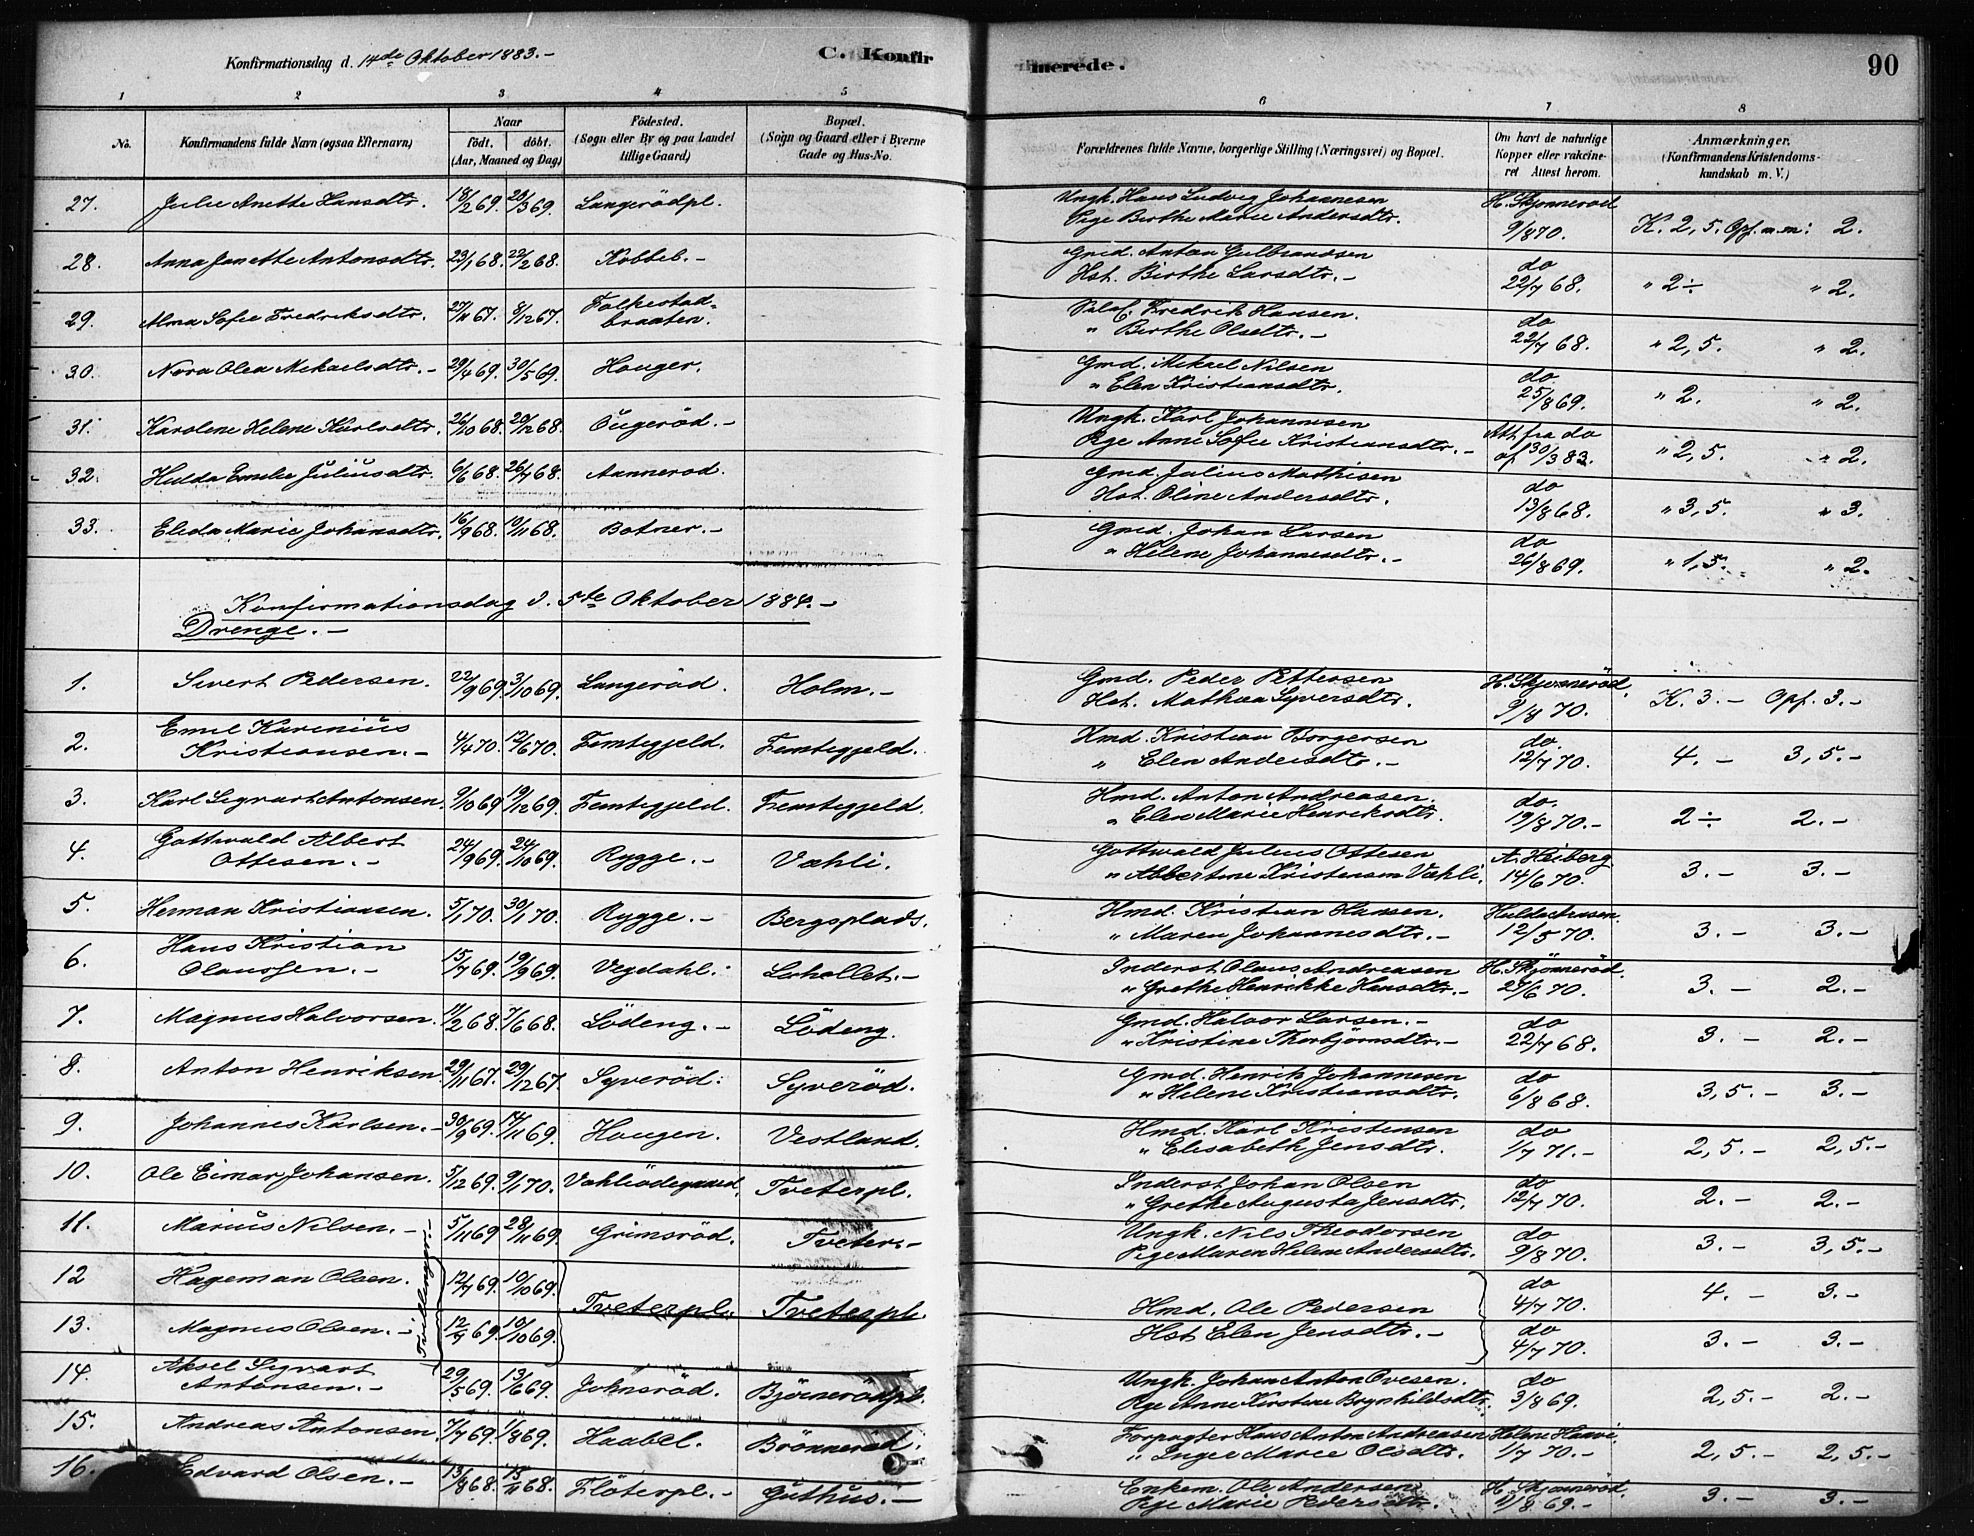 Konfirmationsdag d. 14de Oktober 1883.-
C. Konfirmerede.
90
1 2 3 4 5 6 7 8
No.
Konfirmandens fulde Navn (ogsaa Efternavn)
Naar
födt. döbt.
(Aar, Maaned og Dag)
Födested.
(Sogn eller By og paa Landet
tillige Gaard)
Bopæl.
(Sogn og Gaard eller i Byerne
Gade og Hus-No.
Forældrenes fulde Navne, borgerlige Stilling (Næringsvei) og Bopæl.
Om havt de naturlige
Kopper eller vakcine-
ret Attest herom.
Anmærkninger.
(Konfirmandens Kristendoms-
kundskab m. V.)
27. Julie Anette Hansdtr. 18/2 69. 29/3 69. Langerödpl. Ungk. Hans Ludvig Johannesen H. Skjönneröd
Pige Birthe Marie Andersdtr. 9/8 70. K. 2,5. Opf. m.m: 2.
28. Anna Janette Antonsdtr. 23/1 68. 23/2 68. Kobbeb.- Gmd. Anton Gulbrandsen do
Hst. Birthe Larsdtr.- 22/7 68. " 2÷ " 2.
29. Alma Sofie Fredriksdtr. 27/11 67. 8/12 67. Falkestad-
braaten. Fredrik Hansen. do
" Birthe Olsdtr.- 22/7 68. " 2,5. " 2.
30. Nora Olea Mikaelsdtr.- 29/4 69. 30/5 69. Houger. Gmd. Mikael Nilsen do
" Elen Kristiansdtr. 25/8 69. " 2. " 2.
31. Karolene Helene Karlsdtr. 26/10 68. 29/12 68. Ougeröd.- Ungk. Karl Johannesen Att. fra do
Pige Anne Sofie Kristiansdtr.- af 30/3 83. " 2,5. " 2.
32. Hulda Emelie Juliusdtr. 6/6 68. 26/7 68. Aanneröd. Gmd. Julius Mathisen do
Hst. Oline Andersdtr. 13/8 68. " 3,5. " 3.
33. Elida Marie Johansdtr. 16/9 68. 19/11 68. Botner.- Gmd. Johan Larsen do
" Helene Johannesdtr.- 26/8 69. " 1,5. " 2.
Konfirmationsdag d. 5te Oktober 1884.-
Drenge.-
1. Sivert Pedersen. 22/9 69. 3/10 69. Langeröd. Holm.- Gmd. Peder Pettersen H. Skjönneröd.
Hst. Mathea Syversdtr. 9/8 70. K. 3.- Opf. 3.-
2. Emil Karenius
Kristiansen.- 4/4 70. 12/6 70. Femtegjeld. Femtegjeld. Hmd. Kristian Borgersen do.
" Elen Andersdtr.- 12/7 70. 4.- 3,5.-
3. Karl Segvart Antonsen. 9/10 69. 19/12 69. Femtegjeld. Femtegjeld. Hmd. Anton Andreasen. do.
" Elen Marie Henriksdtr. 19/8 70.- 2÷ 2.-
4. Gottwald Albert
Ottesen.- 24/9 69. 24/10 69. Rygge.- Vahli. Gottwald Julius Ottesen A. Heiberg
" Albertine Kristensen Vahli. 14/6 70. 3.- 3.-
5. Herman Kristiansen. 5/1 70. 30/1 70. Rygge.- Bergsplads. Hmd. Kristian Hansen.
" Maren Johannesdtr.- 12/5 70. 3.- 3.-
6. Hans Kristian
Olaussen.- 15/7 69. 19/9 69. Vegdahl. Inderst Olaus Andreasen H. Skjönneröd.
" Grethe Henrikke Hansdtr.- 27/6 70. 3.- 2.-
7. Magnus Halvorsen. 11/2 68. 7/6 68. Lödeng.- Lödeng. Gmd. Halvor Larsen.- do
" Kristine Thorbjørnsdtr.- 22/7 68. 3.- 2.-
8. Anton Henriksen 29/11 67. 29/12 67. Syveröd. Syveröd. Gmd. Henrik Johannesen do
" Helene Kristiansdtr. 6/8 68. 3,5.- 3.-
9. Johannes Karlsen.- 30/9 69. 14/11 69. Hougen. Vestland. Hmd. Karl Kristensen do
" Elisabeth Jensdtr. 1/7 71.- 2,5.- 2,5.-
10. Ole Eimar Johansen. 5/12 69. 9/1 70. Vahliödegaard. Tveterpl. Inderst Johan Olsen do
" Grethe Augusta Jensdtr. 12/7 70. 2.- 2.-
11. Marius Nilsen.- 5/11 69 28/11 69. Grimsröd. Tveter.- Ungk. Nils Theodorsen do
Pige Maren Helene Andersdtr. 9/8 70. 3.- 3,5.-
12 Hageman Olsen. Tvillinger.- 12/7 69. 10/10 69. Tveterpl. Tveterpl. Hmd. Ole Pedersen do
4/7 70. 4.- 3.-
13. Magnus Olsen.- 12/7 69. 10/10 69. Hst Elen Jensdtr.- do
4/7 70. 3.- 3.-
14. Aksel Sigvart
Antonsen.- 29/5 69. 13/6 69. Johnsröd. Björnerödpl. Ungk. Johan Anton Ovesen. do
Pge Anne Kirstine Brynhildsdtr. 3/8 69. 2,5.- 2.-
15. Andreas Antonsen. 7/7 69. 1/8 69. Haabel. Brönneröd. Forpagter Hans Anton Andreasen Helene
" Inger Marie Olsdtr. 1/7 70.- 2,5.- 2,5.-
16. Edvard Olsen.- 13/8 68. 15/11 68. Flöterpl.- Guthus.- Enkem. Ole Andersen H. Skjönneröd.
Pige Marie Pedersdtr. 11/8 69.- 3.- 3.-